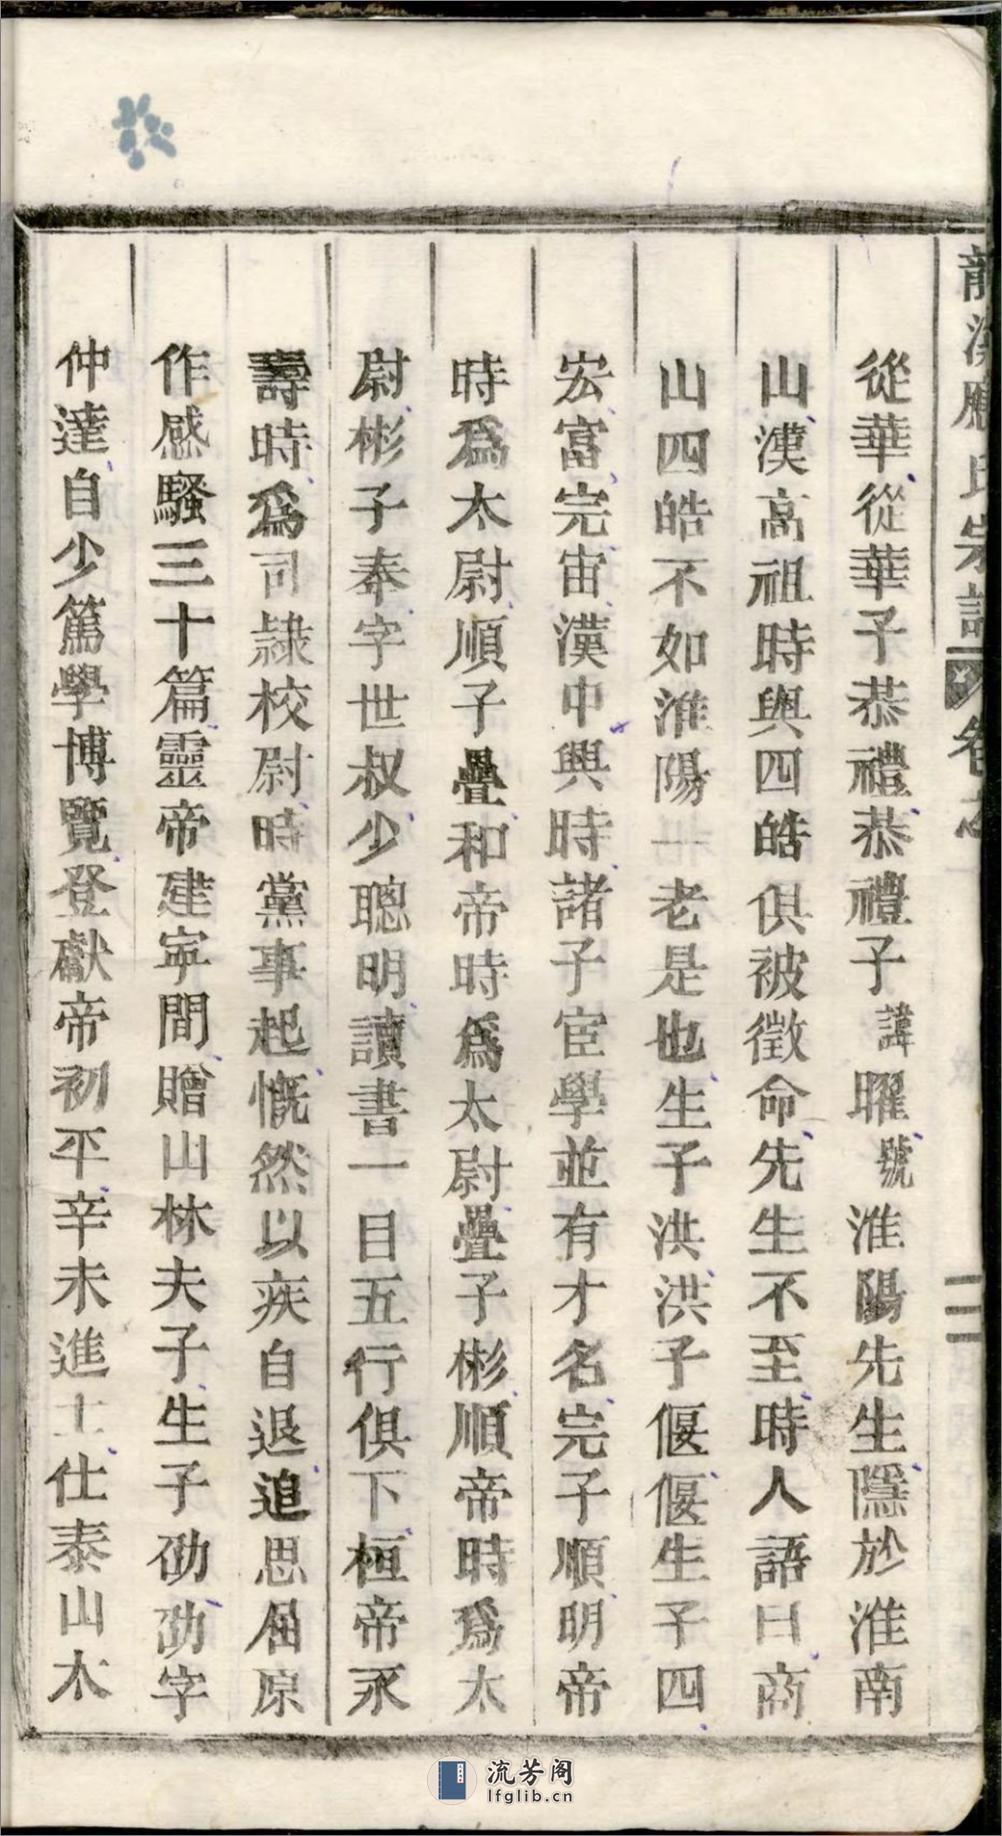 龍溪應氏宗譜 卷之 二
從華從華子恭禮恭禮子諱曜號淮陽先生隱於淮南
山漢高祖時與四皓俱被徵命先生不至時人語曰商
山四皓不如淮陽一老是也生子洪洪子偃偃生子四
宏富完宙漢中興時諸子宦學並有才名完子順明帝
時爲太尉順子疊和帝時爲太尉疊子彬順帝時爲太
尉彬子奉字世叔少聰明讀書一目五行俱下桓帝永
壽時爲司隸校尉時黨事起慨然以疾自退追思屈原
作感騷三十篇靈帝建寧間贈山林夫子生子劭劭字
仲達自少篤學博覽登獻帝初平辛未進士仕泰山太
流芳阁
lfglib.cn